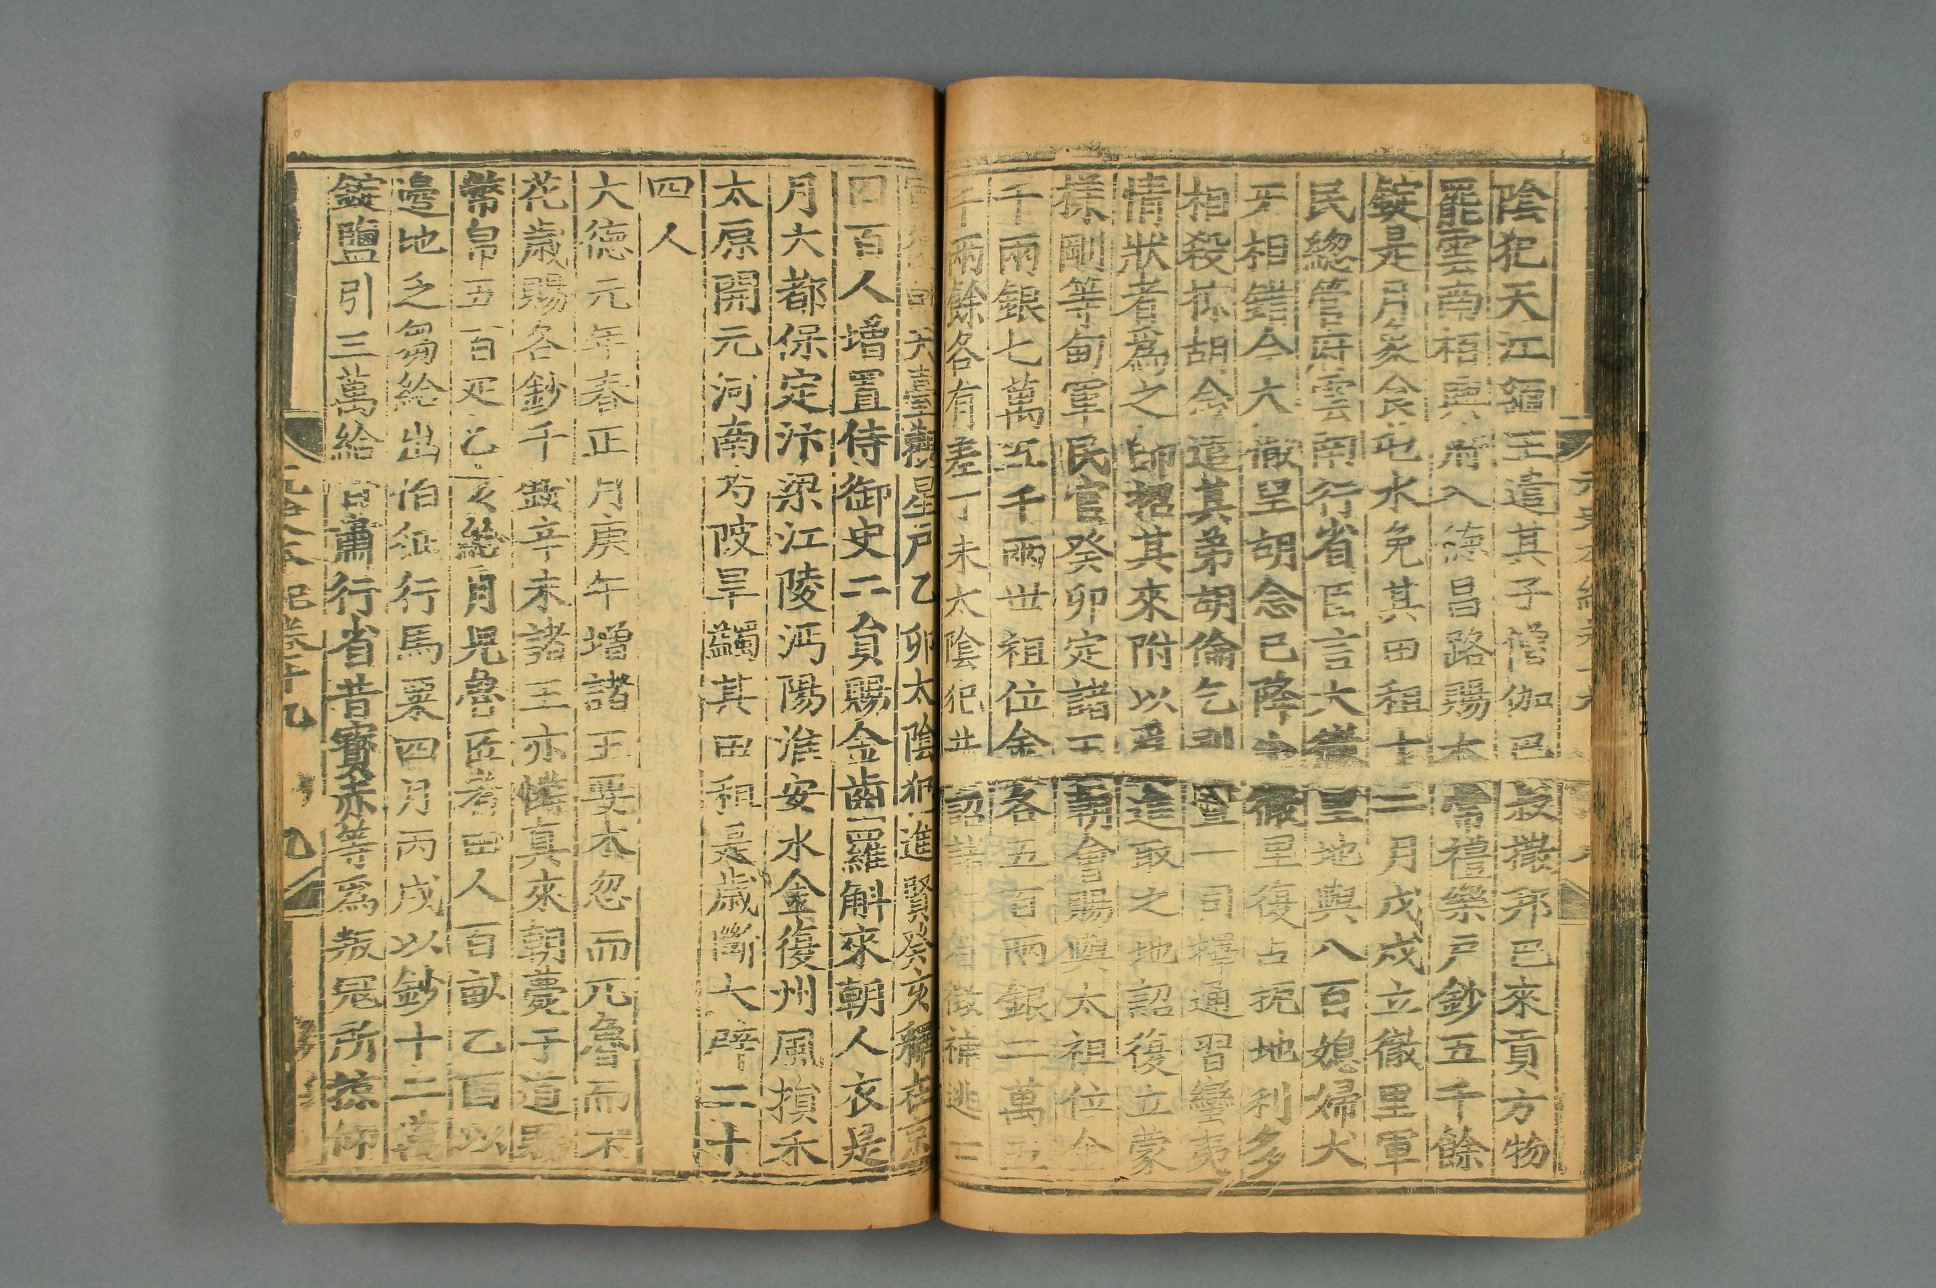 陰犯天江緬王遣其子僧伽巴叔撒邦巴來貢方物
罷雲南梧興府入德昌路賜太常禮樂戶鈔五千餘
錠是月象食屯水免其田租十二月戊戌立徹里軍
民總管府雲南行省臣言大徹里地與八百媳婦犬
牙相錯今大徹里胡念已降小徹里復占扼地利多
相殺掠胡念遣其弟胡倫乞別置一司擇通習蠻夷
情狀者為之帥招其來附以為進取之地詔復立蒙
樣剛等甸軍民官癸卯定諸王朝會賜與太祖位金
千兩銀七萬五千兩世祖位金各五百兩銀二萬五
千兩餘各有差丁未太陰犯井詔諸行省徵補逃亡
天臺觀星戶乙卯太陰犯進賢癸亥釋在京
四百人增置侍御史二員賜金齒羅斛來朝人衣是
月大都保定汴梁江陵沔陽淮安水金復州風損禾
太原開元河南芍陂旱蠲其田租是歲斷大辟二十
四人
大德元年春正月庚午增諸王要木忽而兀魯而不
花歲賜各鈔千錠辛未諸王亦憐真來朝薨于道賜
幣帛五百疋乙亥給月兒魯匠者田人百畝乙酉以
邊地乏芻給出怕征行馬粟四月丙戌以鈔十二萬
錠鹽引三萬給甘肅行省昔寶赤等為叛寇所掠仰
元史本紀卷十九 九